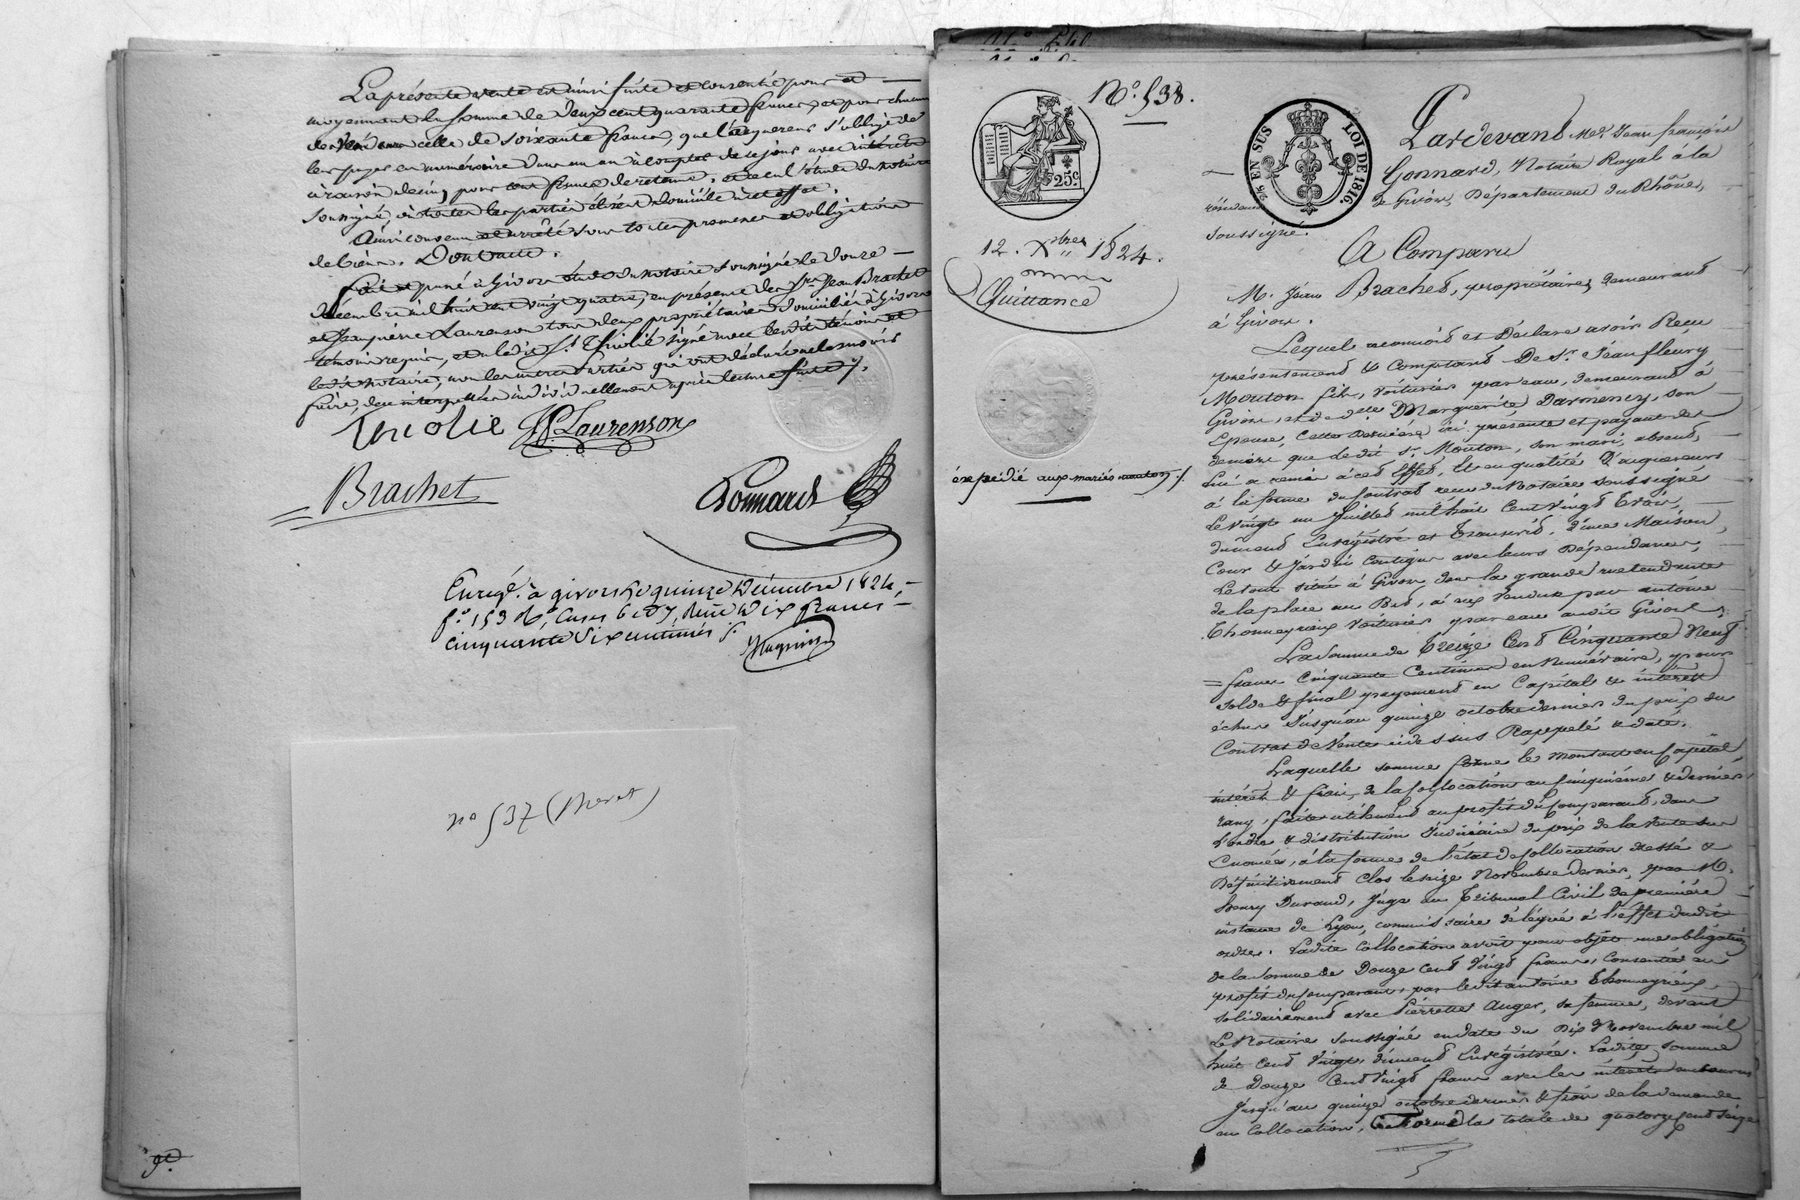 La présente vente est ainsi faite et consentie pour et
moyennant la somme de deux cent quarante francs, et pour chacun
celle de soixante francs, que l'acquéreur s'oblige de
payer en numéraire dans un an à compter de ce jour avec intérêts
à raison de cinq pour cent francs de retenue, l'étude du notaire
soussigné, où toutes les parties élisent domicile à cet effet.
Ainsi convenu et arrêté sous toutes promesses et obligation
de biens. Dont acte.
Fait et passé à Givors étude du notaire soussigné le douze
décembre mil huit cent vingt quatre, en présence des Srs Jean Brachet
et Laurenson tous deux propriétaires domiciliés à Givors
témoins requis, et a ledit Sr signé avec lesdits témoins et
ledit notaire, non les autres parties qui ont déclaré ne le savoir
faire, de ce individuellement après lecture faite /.
Laurenson
Brachet
Gonnard
Enregé. à givors le quinze Décembre 1824,
fo. 153 Ro, Cases 6 et 7, Dix francs
cinquante Six centimes /.
no 537 (
No. 538.
25c
2es EN SUS
LOI DE 1816.
12. Xbre 1824.
Quittance
expédié aux mariés mouton /.
Pardevant Me. Jean françois
Gonnard, Notaire Royal à la
de Givors, Département du Rhône,
soussigné.
A Comparu
M. Jean Brachet, propriétaire, demeurant
à Givors.
Lequel reconnait et Déclare avoir Reçu
présentement & Comptant De Sr. Jean fleury
Mouton fils, voiturier par eau, demeurant à
Givors, et de dlle Marguerite Darmency, son
Epouse, Cette dernière ici présente et payant des
deniers que le dit Sr. Mouton, son mari, absent,
lui a remis à cet effet, Et en qualité D'acquéreurs
à la forme du Contrat reçu du Notaire soussigné
Le vingt un Juillet mil huit Cent vingt Trois,
dûment Enregistré et Transcrit, d'une Maison,
Cour & Jardin Contigus avec leurs Dépendances,
Le tout situé à Givors, dans la grande rue tendante
de la place au Bas, à eux vendus par antoine
Thomeyrieux voiturier par eau audit Givors;
La Somme de Treize Cent Cinquante Neuf
francs Cinquante Centimes en Numéraire, pour
Solde & final payement en Capital & intérêts
échus Jusqu'au quinze octobre dernier du prix du
Contrat de Vente ci dessus Rappelé & daté.
Laquelle somme forme le montant en Capital
intérêts & frais, de la Collocation au Cinquième & dernier
rang, faite utilement au profit du Comparant, dans
L'ordre & distribution Judiciaire du prix de la Vente sus
Enoncée, à la forme de l'état de Collocation dressé &
Définitivement Clos le seize Novembre dernier, par M.
henry Durand, Juge au Tribunal Civil de première
instance de Lyon, commissaire délégué à l'effet du dit
ordre. Ladite Collocation avoit pour objet une obligation
de la Somme de Douze Cent Vingt francs, Consentie au
profit du Comparant, par le dit antoine Thomeyrieux
solidairement avec Pierrette Auger, sa femme, devant
Le Notaire soussigné en date du Dix Novembre mil
huit cent Vingt, dûment Enregistrée. Ladite somme
de Douze Cent Vingt francs avec les intérêts
Jusqu'au quinze octobre dernier & frais de la demande
en Collocation, forme la totale de quatorze cent seize